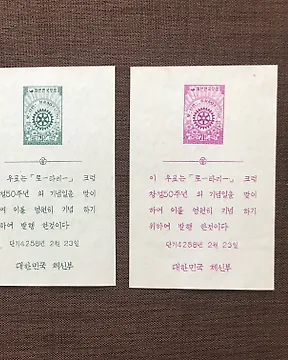 대한민국우표
우표는 「로-타리-」 크럽
창설50주년 의 기념일을 맞이
하여 이를 영원히 기념 하기
위하여 발행 한것이다
단기4288년 2월 23일
대한민국 체신부
대한민국우표
이 우표는 「로-타리-」 크럽
창설50주년 의 기념일을 맞이
하여 이를 영원히 기념 하기
위하여 발행 한것이다
단기4288년 2월 23일
대한민국 체신부